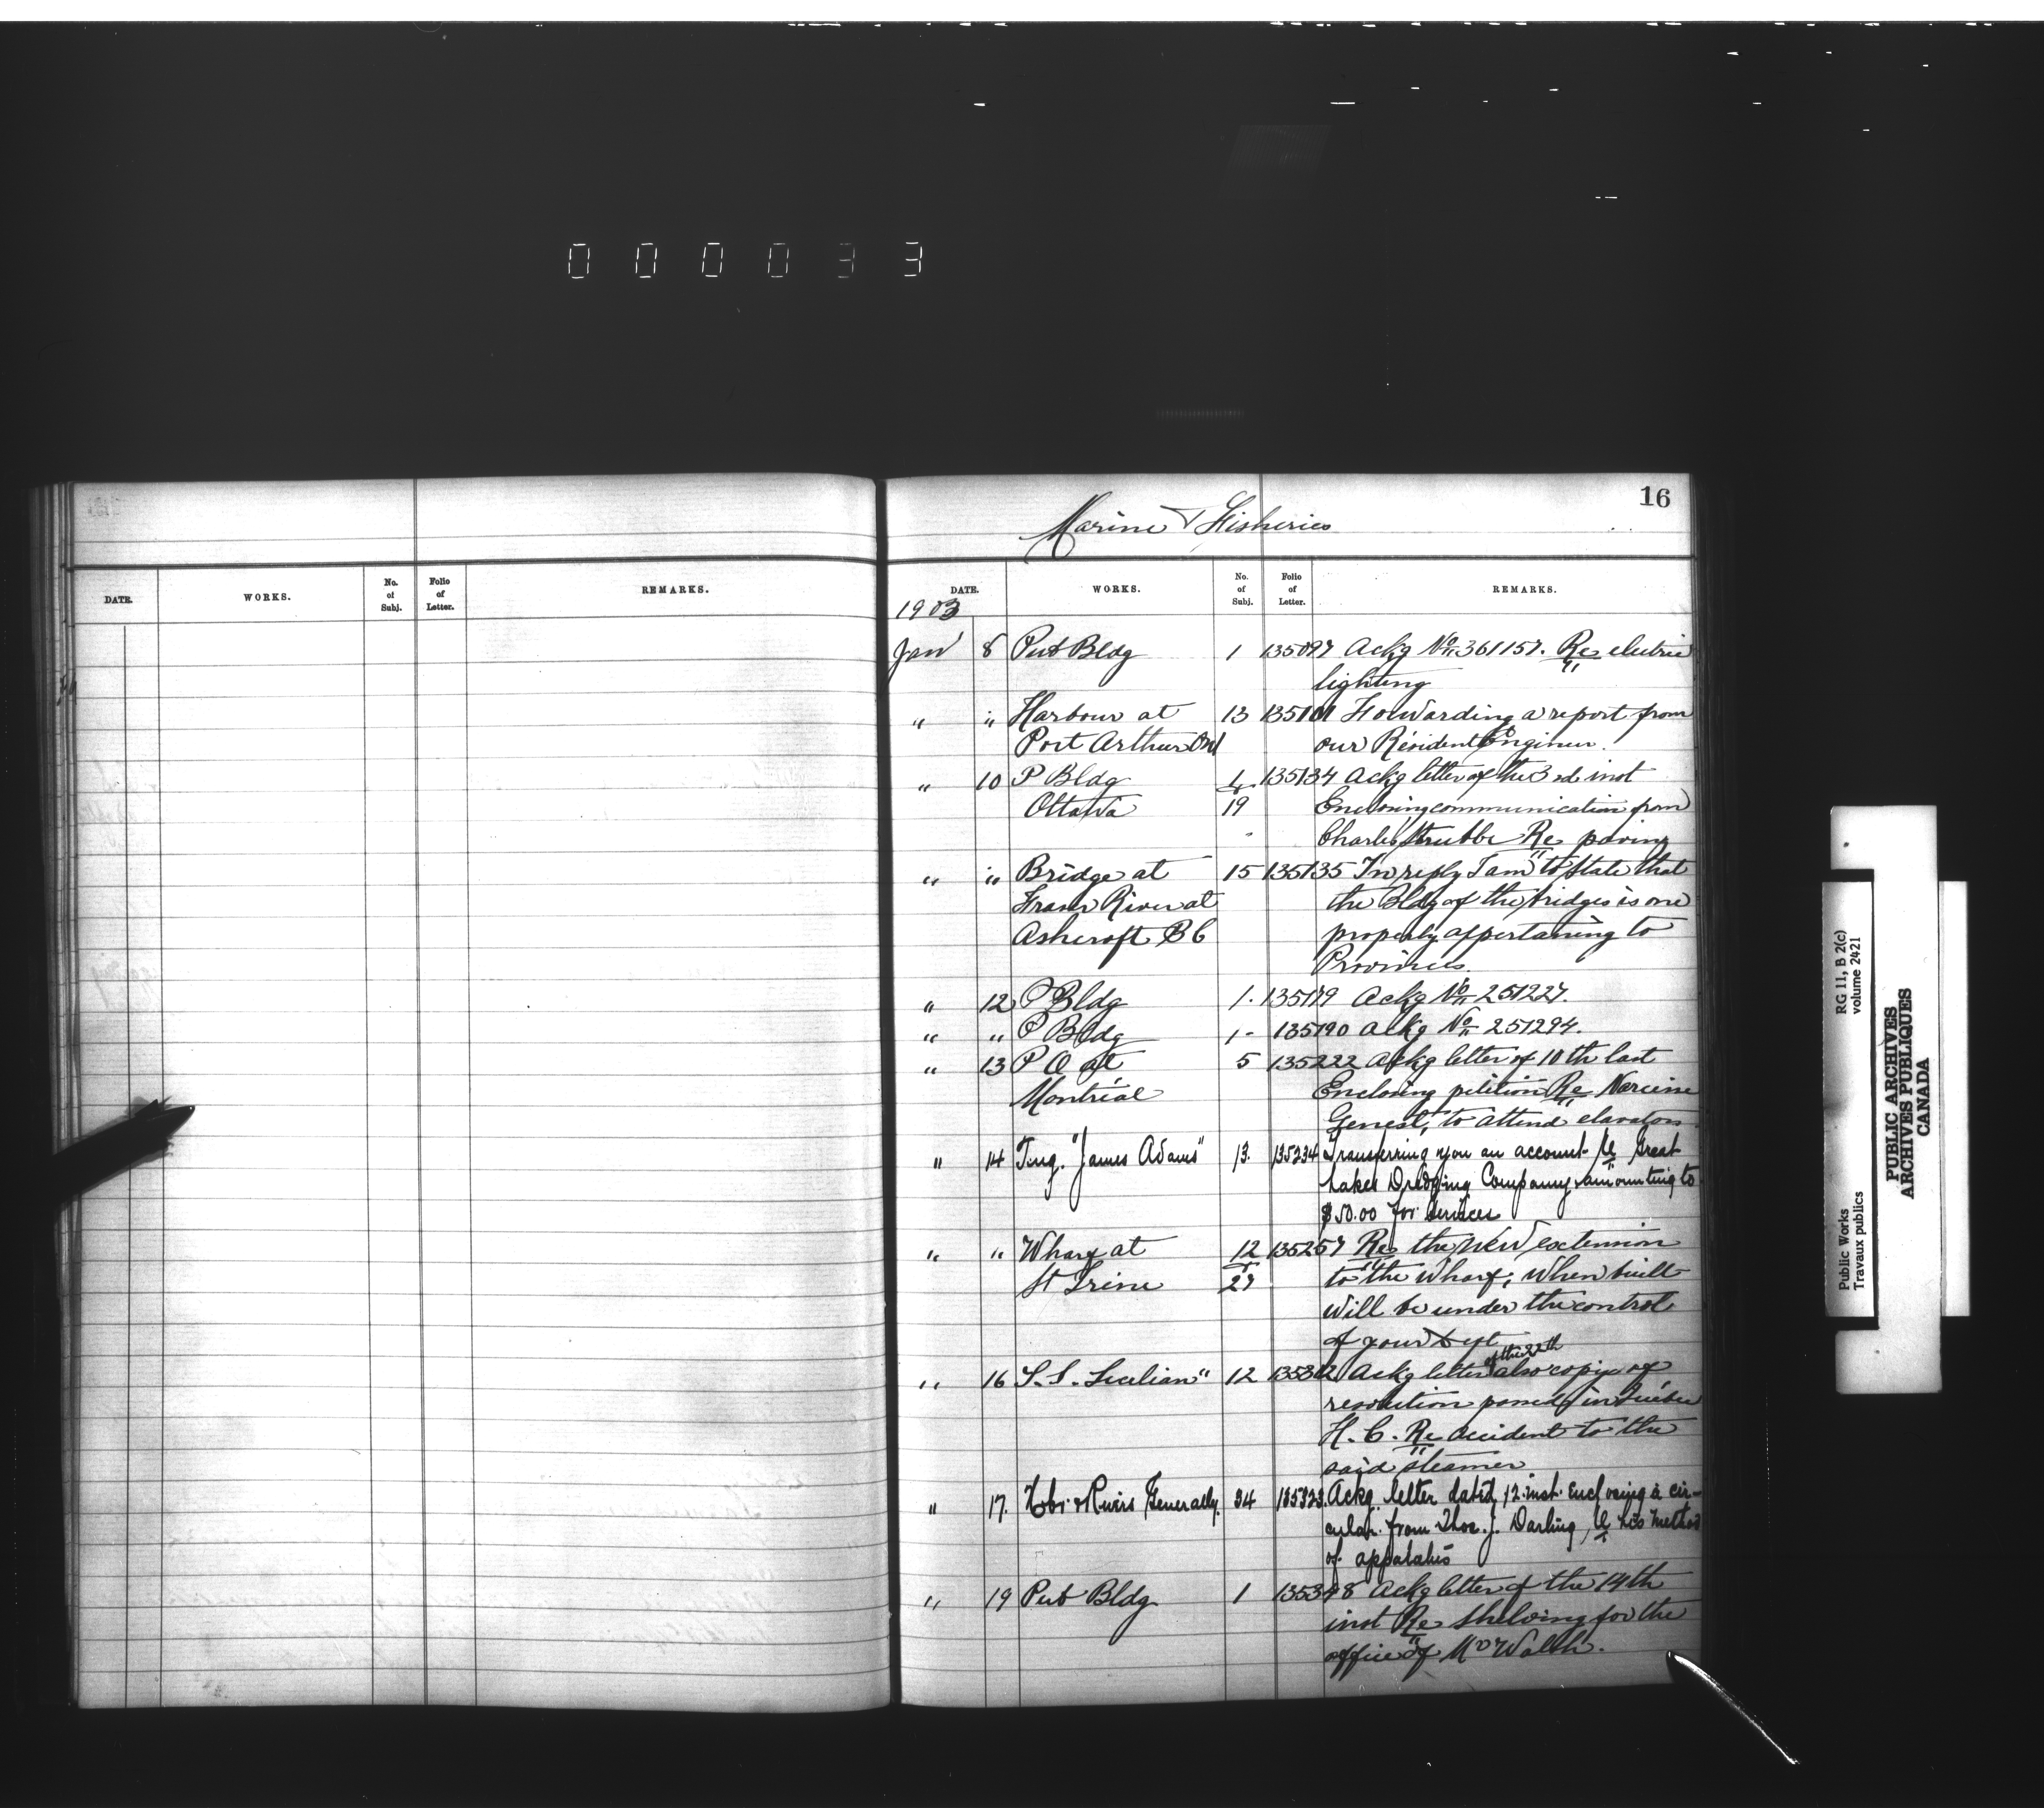 000033
16
Marine & Fisheries
DATE. WORKS. No. of Subj. Folio of Letter. REMARKS.
DATE. WORKS. No. of Subj. Folio of Letter. REMARKS.
1903
Jan 8 Pub Bldg 1 135097 Ackg No 361157. Re electric
lighting
" " Harbour at 13 135101 Forwarding a report from
Port Arthur Ont our Résident Engineer.
" 10 P Bldg 1 135134 Ackg letter of the 3rd inst
Ottawa 19 Enclosing communication from
Charles Strubbe Re paving
" " Bridge at 15 135135 In reply I am to state that
Fraser River at the Bldg of the bridges is one
Ashcroft B C properly appertaining to
Provinces.
" 12 P Bldg 1. 135179 Ackg No 251227.
" " P Bldg 1- 135190 Ackg No 251294.
" 13 P O at 5 135222 Ackg letter of 10th last
Montréal Enclosing petition Re Narcisse
Genest, to attend elavators
" 14 Tug. "James Adams" 13. 135234 Transferring you an account Re Great
Lakes Dredging Company amounting to
$50.00 for services
" " Wharf at 12 135257 Re the new extension
St Irene 27 to the wharf; when built
will be under the control
of your Dept
" 16 S.S. Sicilian" 12 135312 Ackg letter of the 22th also copy of
resolution passed in Québec
H. C. Re accident to the
said steamer
" 17. Hbr. & Rivers Generally. 34 135323. Ackg. letter dated 12 inst. Enclosing a cir-
cular from Thos. J. Darling, Re his method
of
" 19 Pub Bldg 1 135348 Ackg letter of the 14th
inst Re Shelving for the
office of Mr Walsh.
RG 11, B 2(c)
volume 2421
Public Works
Travaux publics
PUBLIC ARCHIVES
ARCHIVES PUBLIQUES
CANADA